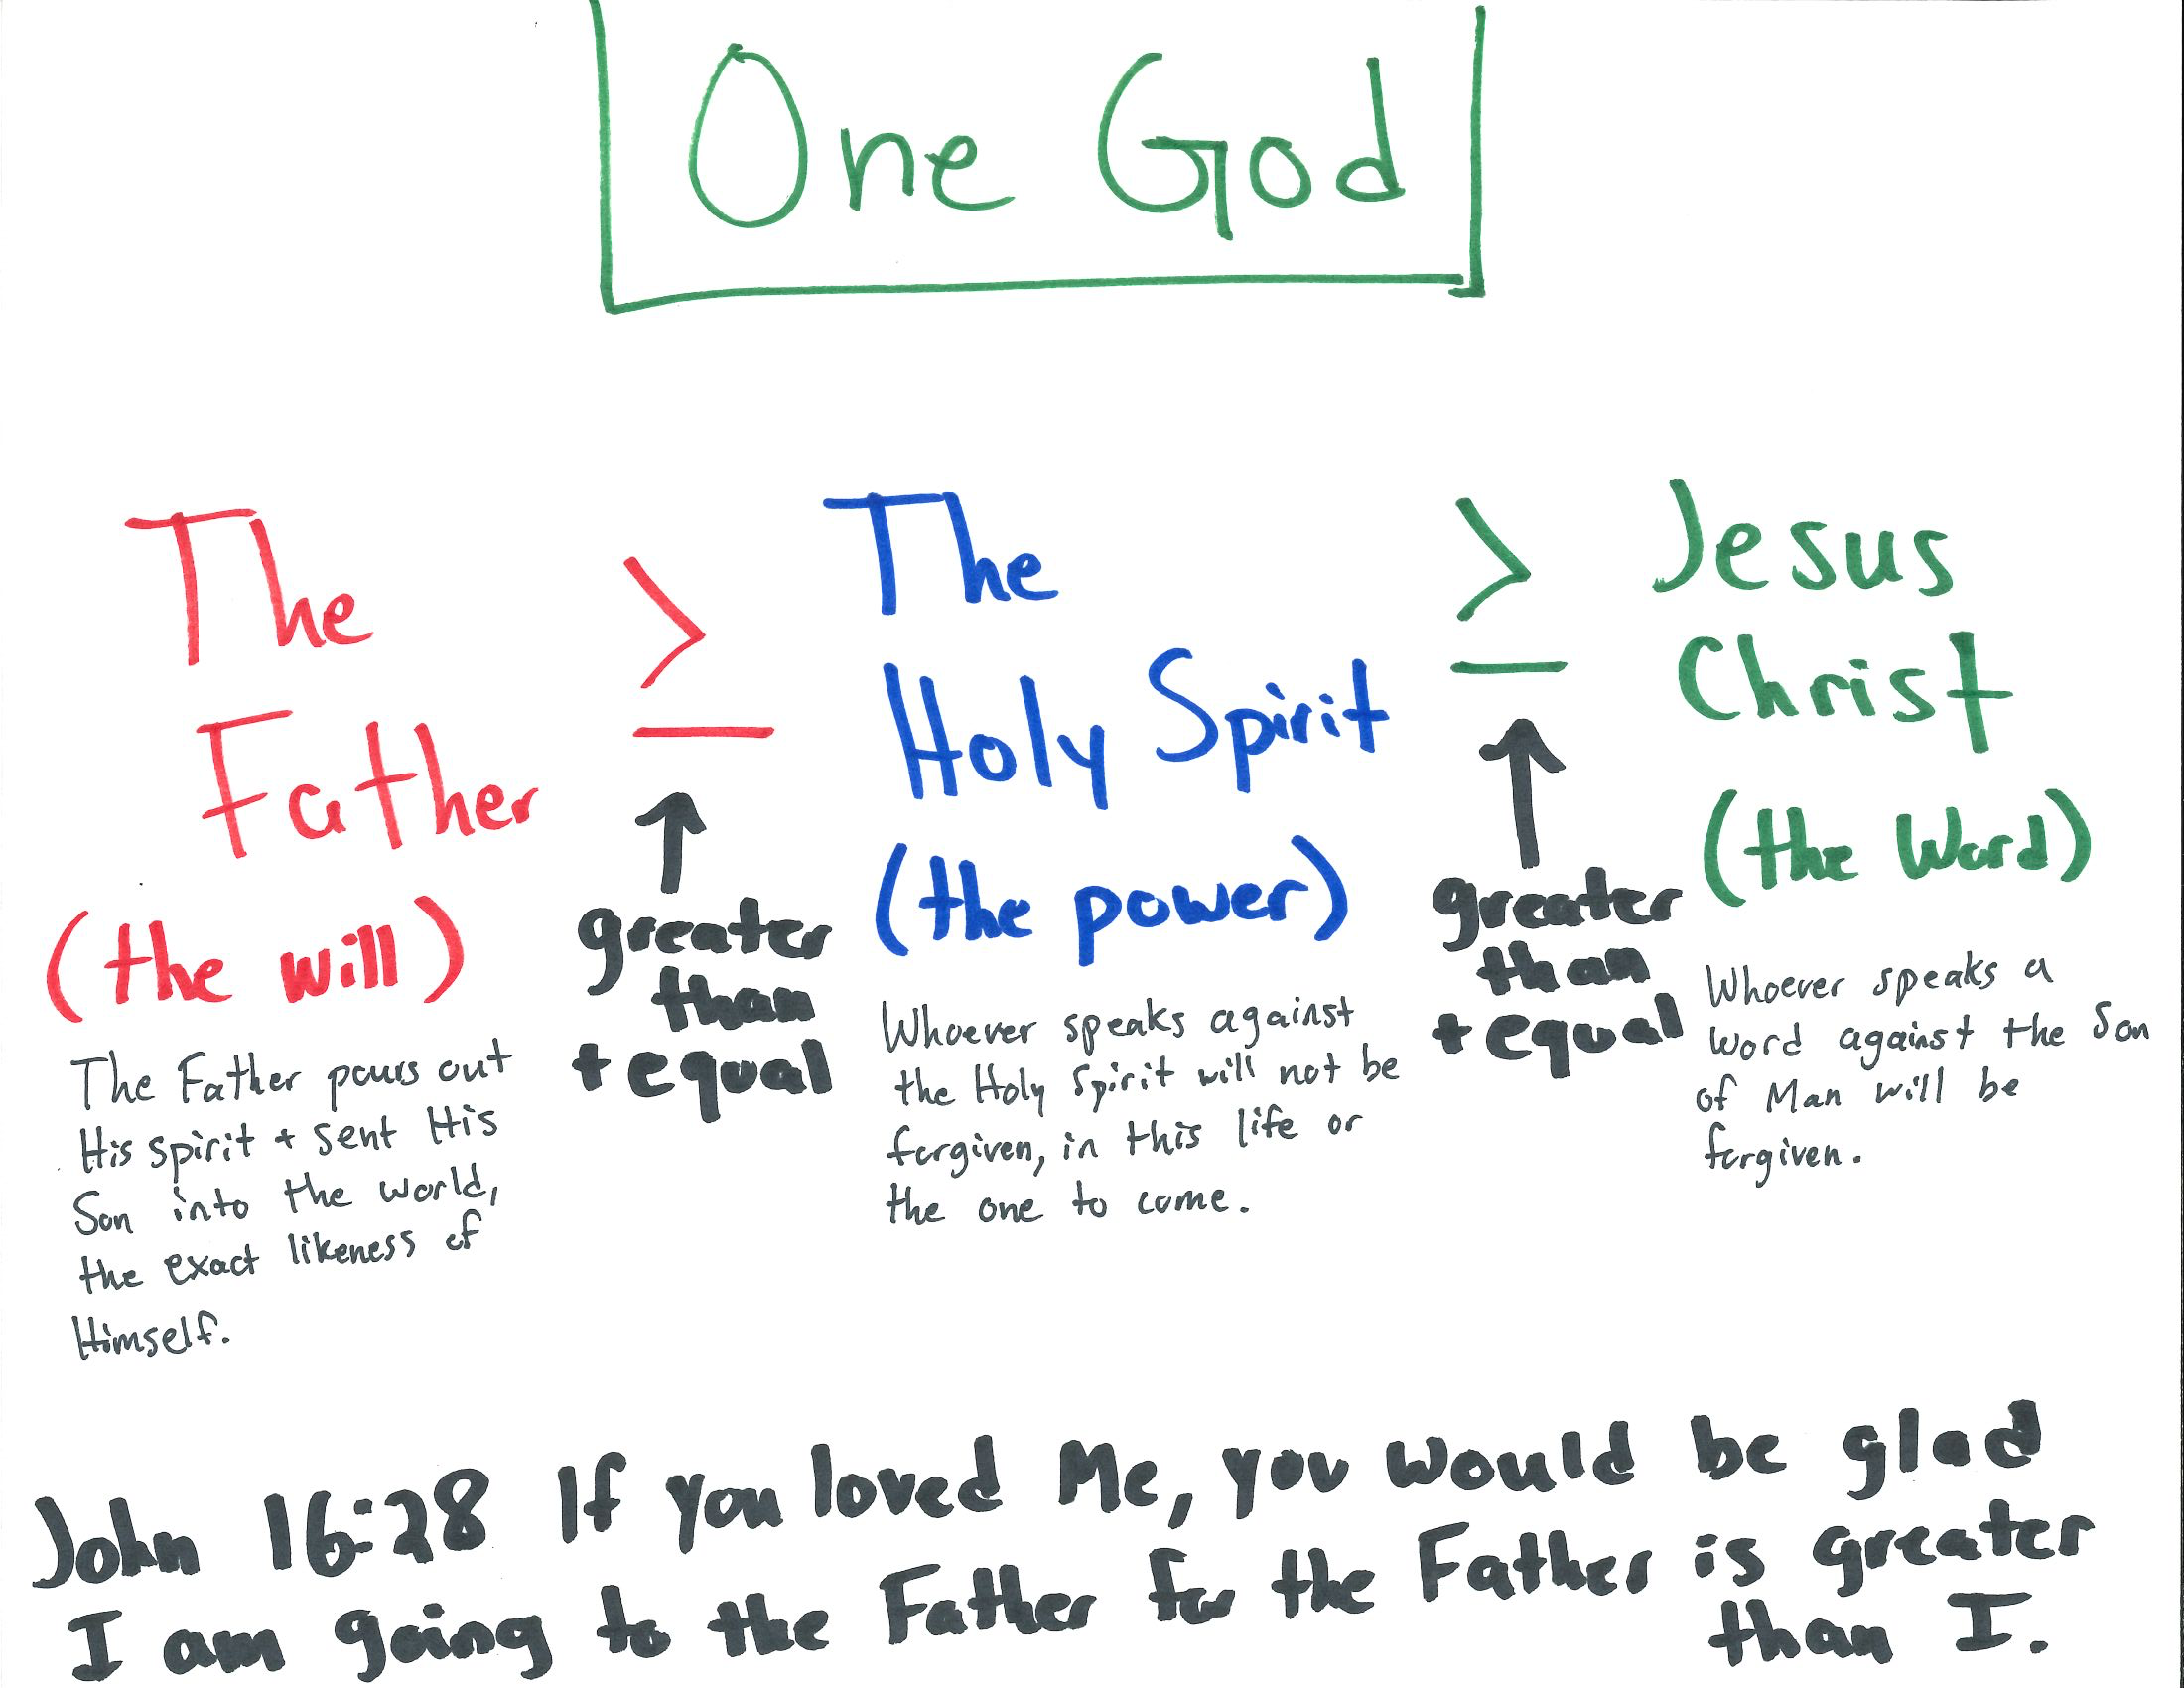 One God
The
Father
(the will)
The Father pours out
His spirit + sent His
Son into the world,
the exact likeness of
Himself.
>
greater
than
+ equal
The
Holy Spirit
(the power)
Whoever speaks against
the Holy Spirit will not be
forgiven, in this life or
the one to come.
>
greater
than
+ equal
Jesus
Christ
(the Word)
Whoever speaks a
word against the Son
of Man will be
forgiven.
John 16:28 If you loved Me, you would be glad
I am going to the Father for the Father is greater
than I.